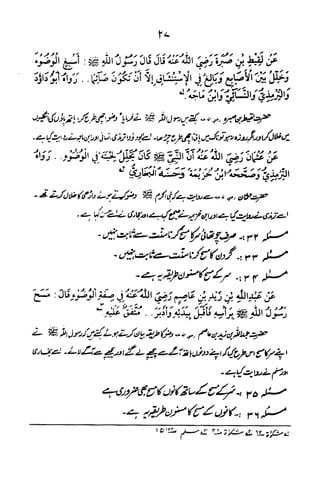 ۲۷
عَنْ لَقِيْطِ بْنِ صَبْرَةَ رَضِيَ اللهُ عَنْهُ قَالَ قَالَ رَسُوْلُ اللهِ ﷺ : أَسْبِغِ الْوُضُوْءَ
وَخَلِّلْ بَيْنَ الْأَصَابِعِ وَبَالِغْ فِي الْاِسْتِنْشَاقِ إِلَّا أَنْ تَكُوْنَ صَائِمًا . . رَوَاهُ أَبُوْ دَاوُدَ
وَالتِّرْمِذِيُّ وَالنَّسَائِيُّ وَابْنُ مَاجَهْ
حضرت لقیط بن صبرہ رضی اللہ عنہ کہتے ہیں رسول اللہ ﷺ نے فرمایا "وضو اچھی طرح کرو، ہاتھ پاؤں کی انگلیوں
میں خلال کرو اور اگر روزہ نہ ہو تو ناک میں پانی اچھی طرح چڑھاؤ۔ اسے ابوداؤد، ترمذی، نسائی اور ابن ماجہ نے روایت کیا ہے۔
عَنْ عُثْمَانَ رَضِيَ اللهُ عَنْهُ أَنَّ النَّبِيَّ ﷺ كَانَ يُخَلِّلُ لِحْيَتَهُ فِي الْوُضُوْءِ . . رَوَاهُ
التِّرْمِذِيُّ وَصَحَّحَهُ ابْنُ خُزَيْمَةَ وَحَسَّنَهُ الْبُخَارِيُّ
حضرت عثمان رضی اللہ عنہ سے روایت ہے کہ نبی اکرم ﷺ وضو کرتے ہوئے داڑھی کا خلال کرتے تھے۔
اسے ترمذی نے روایت کیا ہے اور ابن خزیمہ نے صحیح کہا ہے اور بخاری نے اسے حسن کہا ہے۔
مسئلہ ۳۲ :۔ صرف چوتھائی سر کا مسح کرنا سنت سے ثابت نہیں۔
مسئلہ ۳۳ :۔ گردن کا مسح کرنا سنت سے ثابت نہیں۔
مسئلہ ۳۴ :۔ سر کے مسح کا مسنون طریقہ یہ ہے۔
عَنْ عَبْدِ اللهِ بْنِ زَيْدِ بْنِ عَاصِمٍ رَضِيَ اللهُ عَنْهُ فِيْ صِفَةِ الْوُضُوْءِ قَالَ : مَسَحَ
رَسُوْلُ اللهِ ﷺ بِرَأْسِهِ فَأَقْبَلَ بِيَدَيْهِ وَأَدْبَرَ . . مُتَّفَقٌ عَلَيْهِ
حضرت عبداللہ بن زید بن عاصم رضی اللہ عنہ وضو کا طریقہ بیان کرتے ہوئے کہتے ہیں کہ رسول اللہ ﷺ نے
اپنے سر کا مسح اس طرح کیا کہ اپنے دونوں ہاتھ آگے سے پیچھے لے گئے اور پیچھے سے آگے لائے۔ اسے بخاری
اور مسلم نے روایت کیا ہے۔
مسئلہ ۳۵ :۔ سر کے مسح کے ساتھ کانوں کا مسح بھی ضروری ہے
مسئلہ ۳۶ :۔ کانوں کے مسح کا مسنون طریقہ یہ ہے۔